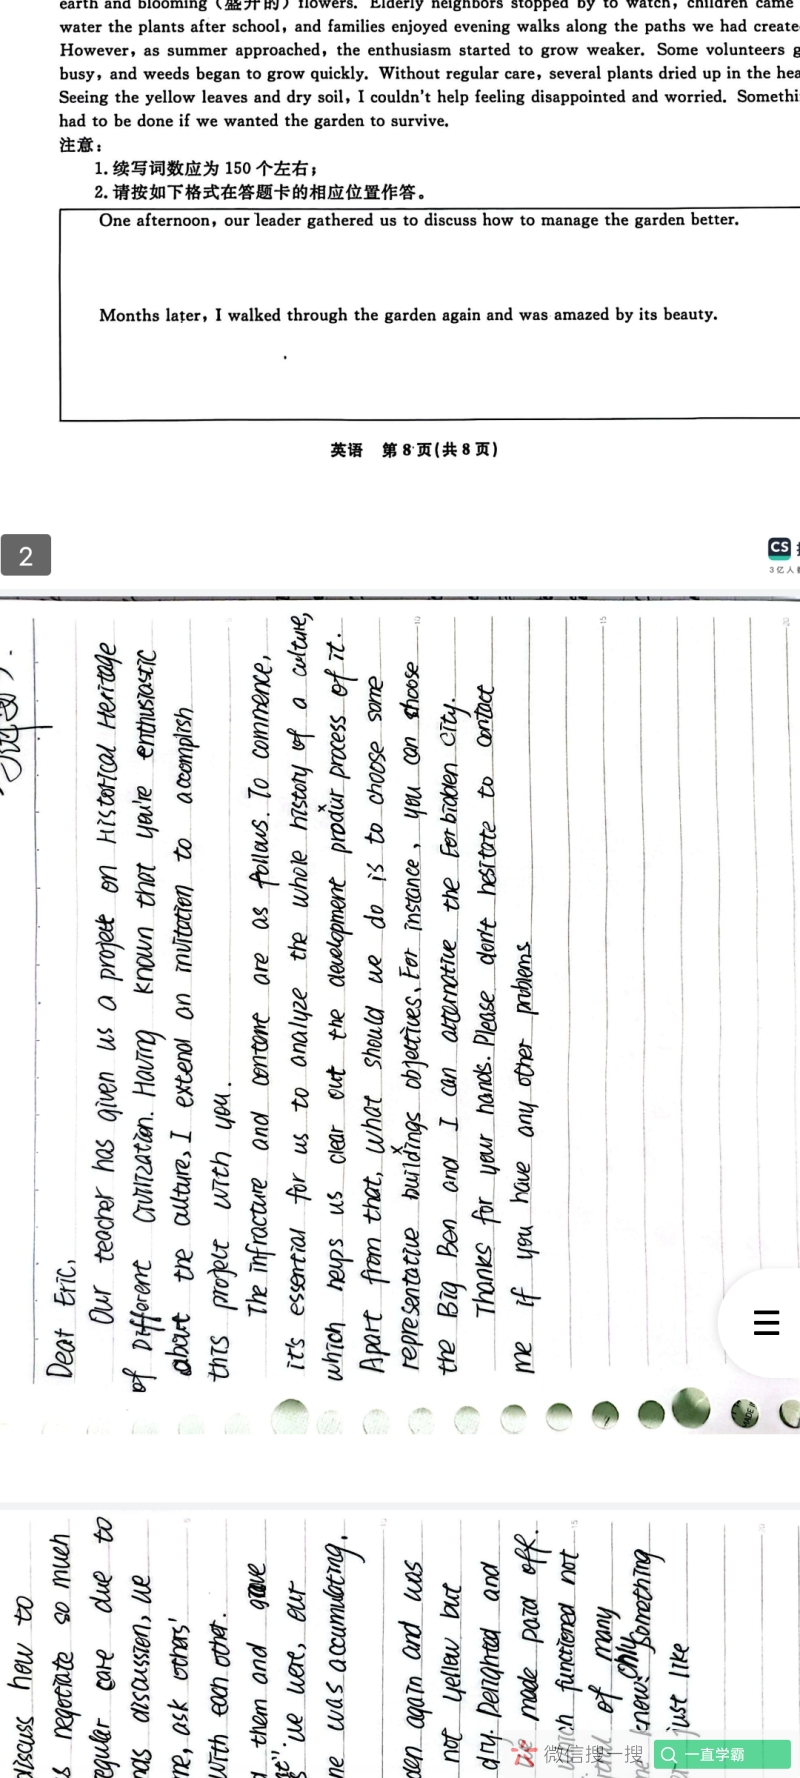 earth and blooming (盛开的) flowers. Elderly neighbors stopped by to watch, children came
water the plants after school, and families enjoyed evening walks along the paths we had create
However, as summer approached, the enthusiasm started to grow weaker. Some volunteers g
busy, and weeds began to grow quickly. Without regular care, several plants dried up in the hea
Seeing the yellow leaves and dry soil, I couldn't help feeling disappointed and worried. Somethi
had to be done if we wanted the garden to survive.
注意：
1. 续写词数应为 150 个左右；
2. 请按如下格式在答题卡的相应位置作答。
One afternoon, our leader gathered us to discuss how to manage the garden better.
Months later, I walked through the garden again and was amazed by its beauty.
英语 第 8 页(共 8 页)
2
CS
3亿人
Dear Eric,
Our teacher has given us a project on Historical Heritage
of Different Civilization. Having known that you're enthusiastic
about the culture, I extend an invitation to accomplish
this project with you.
The infracture and content are as follows. To commence,
it's essential for us to analyze the whole history of a culture,
which helps us clear out the development process of it.
Apart from that, what should we do is to choose some
representative buildings objectives. For instance, you can choose
the Big Ben and I can alternative the Forbidden City.
Thanks for your hands. Please don't hesitate to contact
me if you have any other problems
discuss how to
negotiate so much
regular care due to
discussion, we
me, ask others'
with each other.
them and gave
we were, our
was accumulating.
again and was
not yellow but
dry. Delighted and
we made paid off.
which functioned not
of many
only
know: something
just like
微信搜一搜
一直学霸